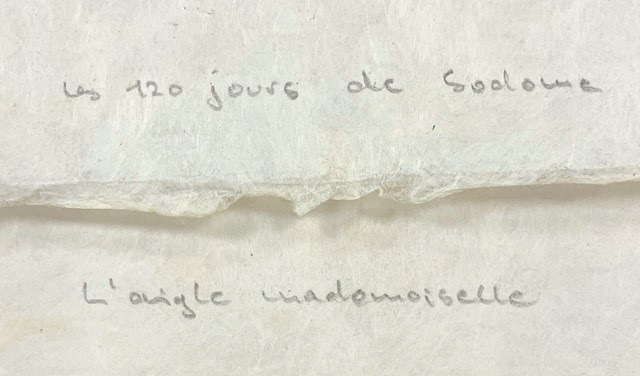 Les 120 jours de Sodome
L'aigle mademoiselle